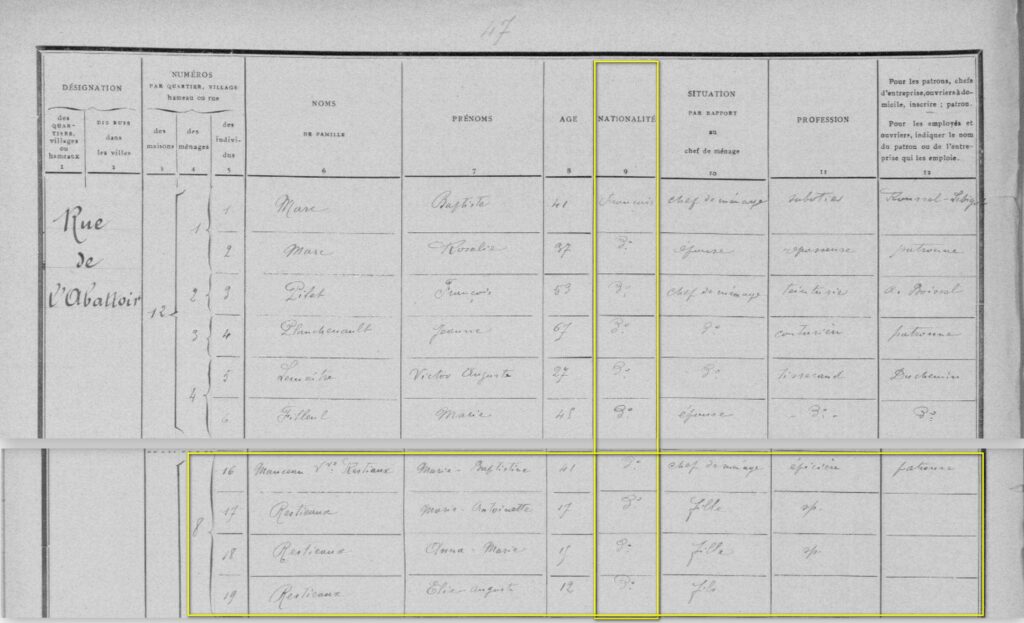 47
DÉSIGNATION
NUMÉROS
PAR QUARTIER, VILLAGE
hameau ou rue
NOMS
DE FAMILLE
PRÉNOMS
AGE
NATIONALITÉ
SITUATION
PAR RAPPORT
au
chef de ménage
PROFESSION
Pour les patrons, chefs
d'entreprise, ouvriers à do-
micile, inscrire : patron.
Pour les employés et
ouvriers, indiquer le nom
du patron ou de l'entre-
prise qui les emploie.
des
QUAR-
TIERS,
villages
ou
hameaux
DES RUES
dans
les villes
des
maisons
des
ménages
des
indivi-
dus
1 2 3 4 5 6 7 8 9 10 11 12
Rue
de
l'Abattoir
12
1 1 Marc Baptiste 41 Français chef de ménage sabotier
2 Marc Rosalie 37 Do épouse repasseuse patronne
2 3 Pitet François 53 Do chef de ménage
3 4 Planchenault Jeanne 67 Do Do patronne
4 5 Lemaitre Victor Auguste 27 Do Do tisserand Duchemin
6 Filleul Marie 45 Do épouse Do Do
8 16 Manceau Vve Restiaux Marie-Baptistine 41 Do chef de ménage épicière patronne
17 Restieaux Marie-Antoinette 17 Do fille sp.
18 Restieaux Anna-Marie 15 Do fille sp.
19 Restieaux Elie Auguste 12 Do fils